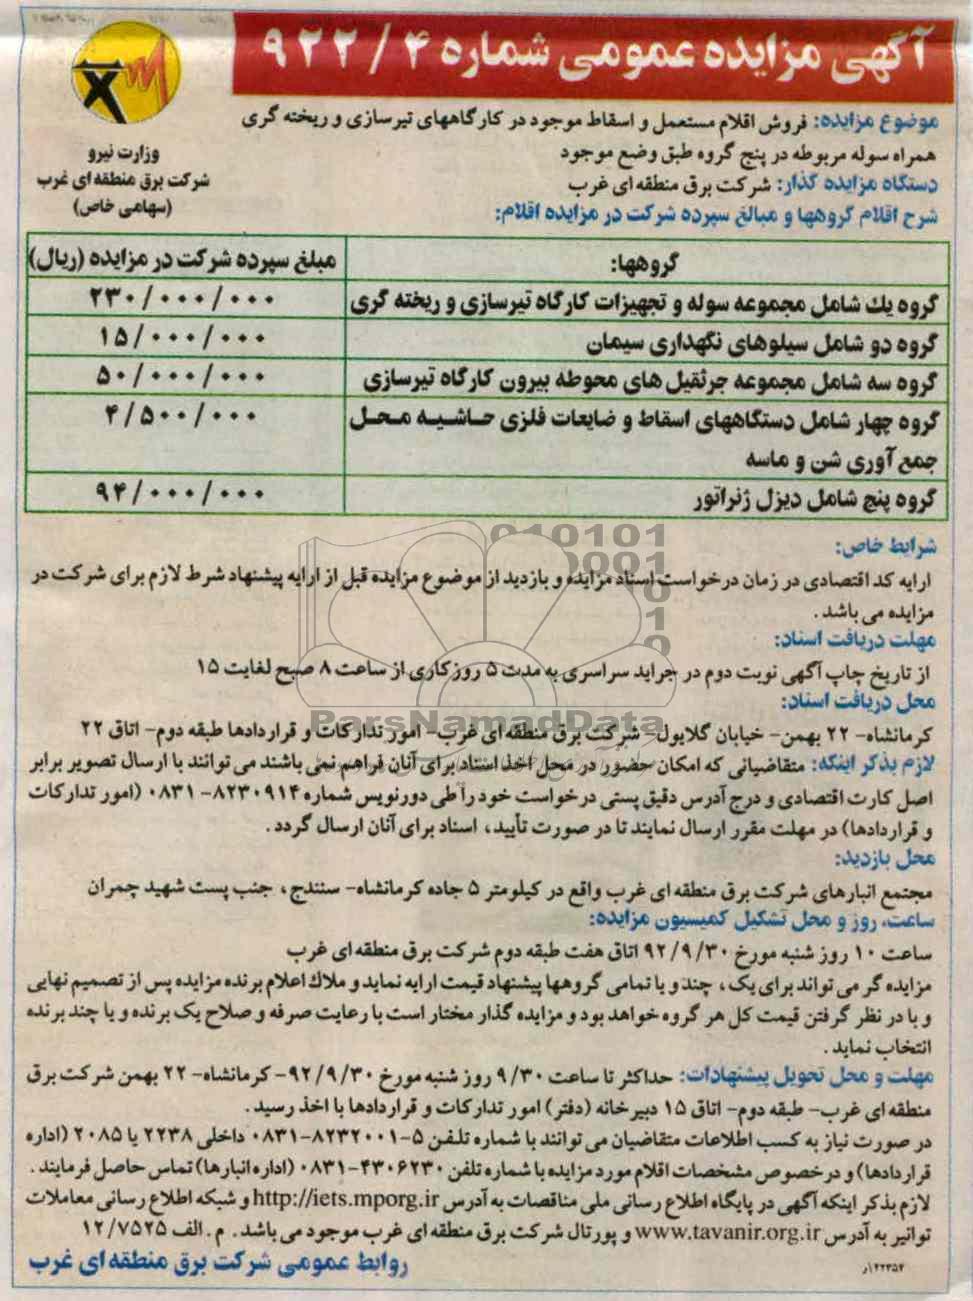 آگهی مزایده عمومی شماره ۴ / ۹۲۲
وزارت نیرو
شرکت برق منطقه ای غرب
(سهامی خاص)
موضوع مزایده: فروش اقلام مستعمل و اسقاط موجود در کارگاههای تیرسازی و ریخته گری
همراه سوله مربوطه در پنج گروه طبق وضع موجود
دستگاه مزایده گذار: شرکت برق منطقه ای غرب
شرح اقلام گروهها و مبالغ سپرده شرکت در مزایده اقلام:
گروهها: مبلغ سپرده شرکت در مزایده (ریال)
گروه یك شامل مجموعه سوله و تجهیزات کارگاه تیرسازی و ریخته گری ۲۳۰/۰۰۰/۰۰۰
گروه دو شامل سیلوهای نگهداری سیمان ۱۵/۰۰۰/۰۰۰
گروه سه شامل مجموعه جرثقیل های محوطه بیرون کارگاه تیرسازی ۵۰/۰۰۰/۰۰۰
گروه چهار شامل دستگاههای اسقاط و ضایعات فلزی حاشیه محل ۴/۵۰۰/۰۰۰
جمع آوری شن و ماسه
گروه پنج شامل دیزل ژنراتور ۹۴/۰۰۰/۰۰۰
شرایط خاص:
ارایه کد اقتصادی در زمان درخواست اسناد مزایده و بازدید از موضوع مزایده قبل از ارایه پیشنهاد شرط لازم برای شرکت در
مزایده می باشد .
مهلت دریافت اسناد:
از تاریخ چاپ آگهی نوبت دوم در جراید سراسری به مدت ۵ روز کاری از ساعت ۸ صبح لغایت ۱۵
محل دریافت اسناد:
ParsNamadData
کرمانشاه- ۲۲ بهمن- خیابان گلایول- شرکت برق منطقه ای غرب- امور تدارکات و قراردادها طبقه دوم- اتاق ۲۲
لازم بذکر اینکه: متقاضیانی که امکان حضور در محل اخذ اسناد برای آنان فراهم نمی باشند می توانند با ارسال تصویر برابر
اصل کارت اقتصادی و درج آدرس دقیق پستی درخواست خود را طی دورنویس شماره ۸۲۳۰۹۱۴- ۰۸۳۱ (امور تدارکات
و قراردادها) در مهلت مقرر ارسال نمایند تا در صورت تأیید، اسناد برای آنان ارسال گردد .
محل بازدید:
مجتمع انبارهای شرکت برق منطقه ای غرب واقع در کیلومتر ۵ جاده کرمانشاه- سنندج، جنب پست شهید چمران
ساعت، روز و محل تشکیل کمیسیون مزایده:
ساعت ۱۰ روز شنبه مورخ ۹۲/۹/۳۰ اتاق هفت طبقه دوم شرکت برق منطقه ای غرب
مزایده گر می تواند برای یک، چند و یا تمامی گروهها پیشنهاد قیمت ارایه نماید و ملاك اعلام برنده مزایده پس از تصمیم نهایی
و با در نظر گرفتن قیمت کل هر گروه خواهد بود و مزایده گذار مختار است با رعایت صرفه و صلاح یک برنده و یا چند برنده
انتخاب نماید .
مهلت و محل تحویل پیشنهادات: حداکثر تا ساعت ۹/۳۰ روز شنبه مورخ ۹۲/۹/۳۰- کرمانشاه- ۲۲ بهمن شرکت برق
منطقه ای غرب- طبقه دوم- اتاق ۱۵ دبیرخانه (دفتر) امور تدارکات و قراردادها با اخذ رسید .
در صورت نیاز به کسب اطلاعات متقاضیان می توانند با شماره تلفن ۵-۸۲۳۲۰۰۱-۰۸۳۱ داخلی ۲۲۳۸ یا ۲۰۸۵ (اداره
قراردادها) و در خصوص مشخصات اقلام مورد مزایده با شماره تلفن ۴۳۰۶۲۳۰-۰۸۳۱ (اداره انبارها) تماس حاصل فرمایند .
لازم بذکر اینکه آگهی در پایگاه اطلاع رسانی ملی مناقصات به آدرس http://iets.mporg.ir و شبکه اطلاع رسانی معاملات
توانیر به آدرس www.tavanir.org.ir و پورتال شرکت برق منطقه ای غرب موجود می باشد . م . الف ۱۲/۷۵۲۵
روابط عمومی شرکت برق منطقه ای غرب